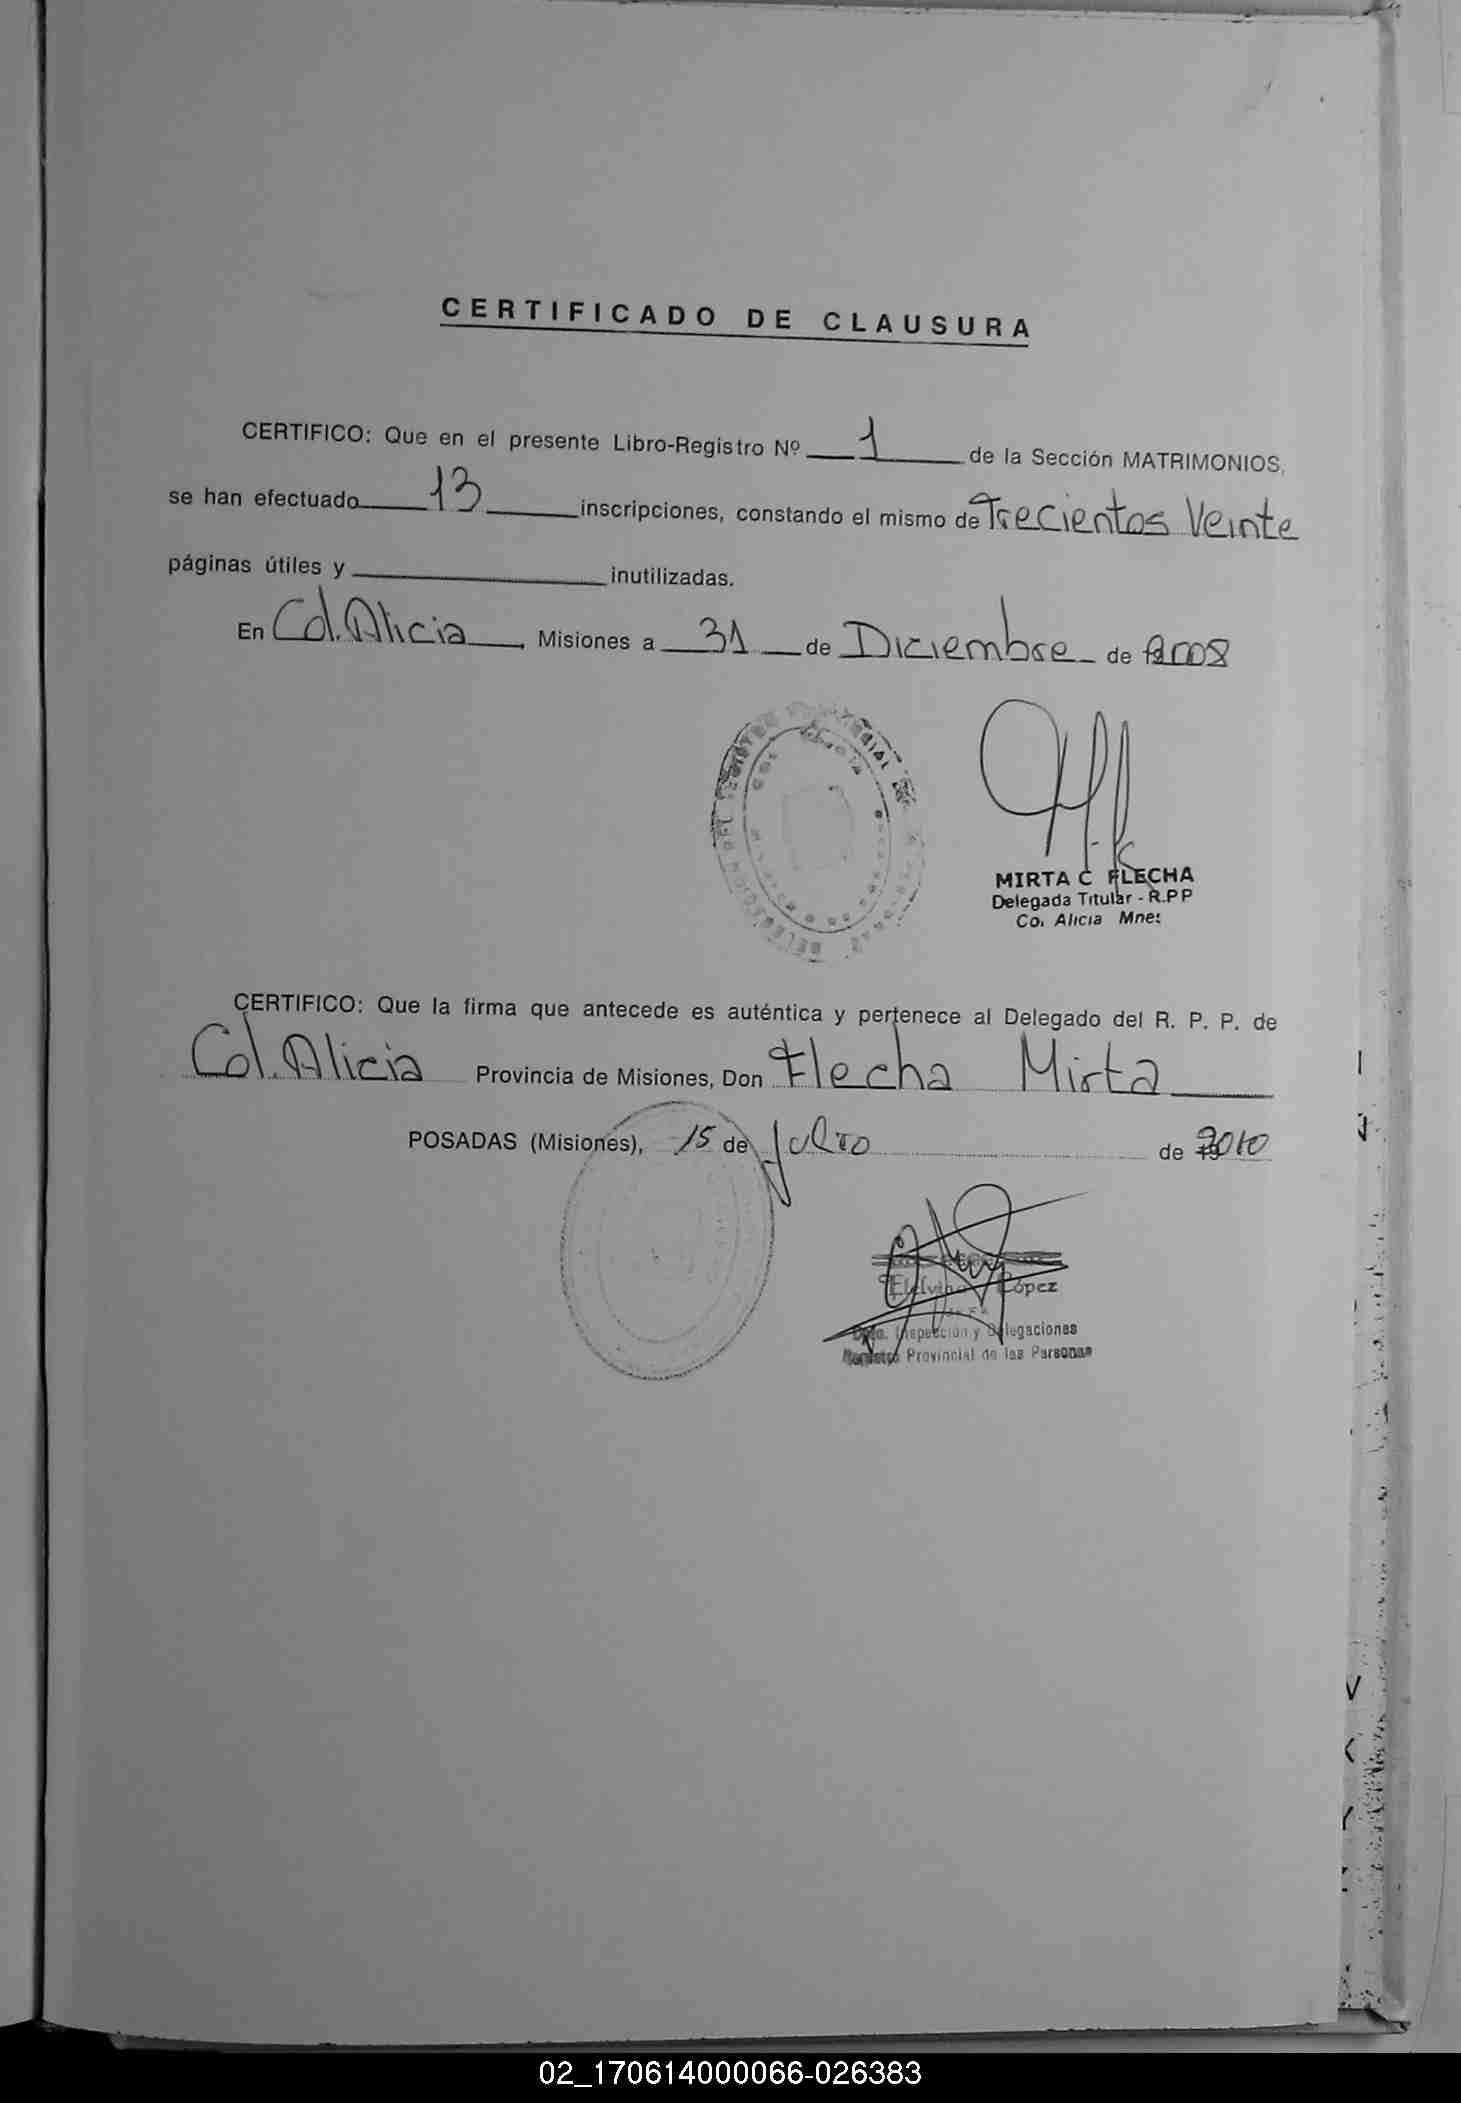 CERTIFICADO DE CLAUSURA
CERTIFICO: Que en el presente Libro-Registro Nº 1 de la Sección MATRIMONIOS,
se han efectuado 13 inscripciones, constando el mismo de Trecientos Veinte
páginas útiles y inutilizadas.
En Col. Alicia, Misiones a 31 de Diciembre de 2008
MIRTA C FLECHA
Delegada Titular - R.P P
Co. Alicia Mnes
CERTIFICO: Que la firma que antecede es auténtica y pertenece al Delegado del R. P. P. de
Col. Alicia Provincia de Misiones, Don Flecha Mirta
POSADAS (Misiones), 15 de Julio de 2010
López
Dpto. Inspección y Delegaciones
Registro Provincial de las Personas
02_170614000066-026383